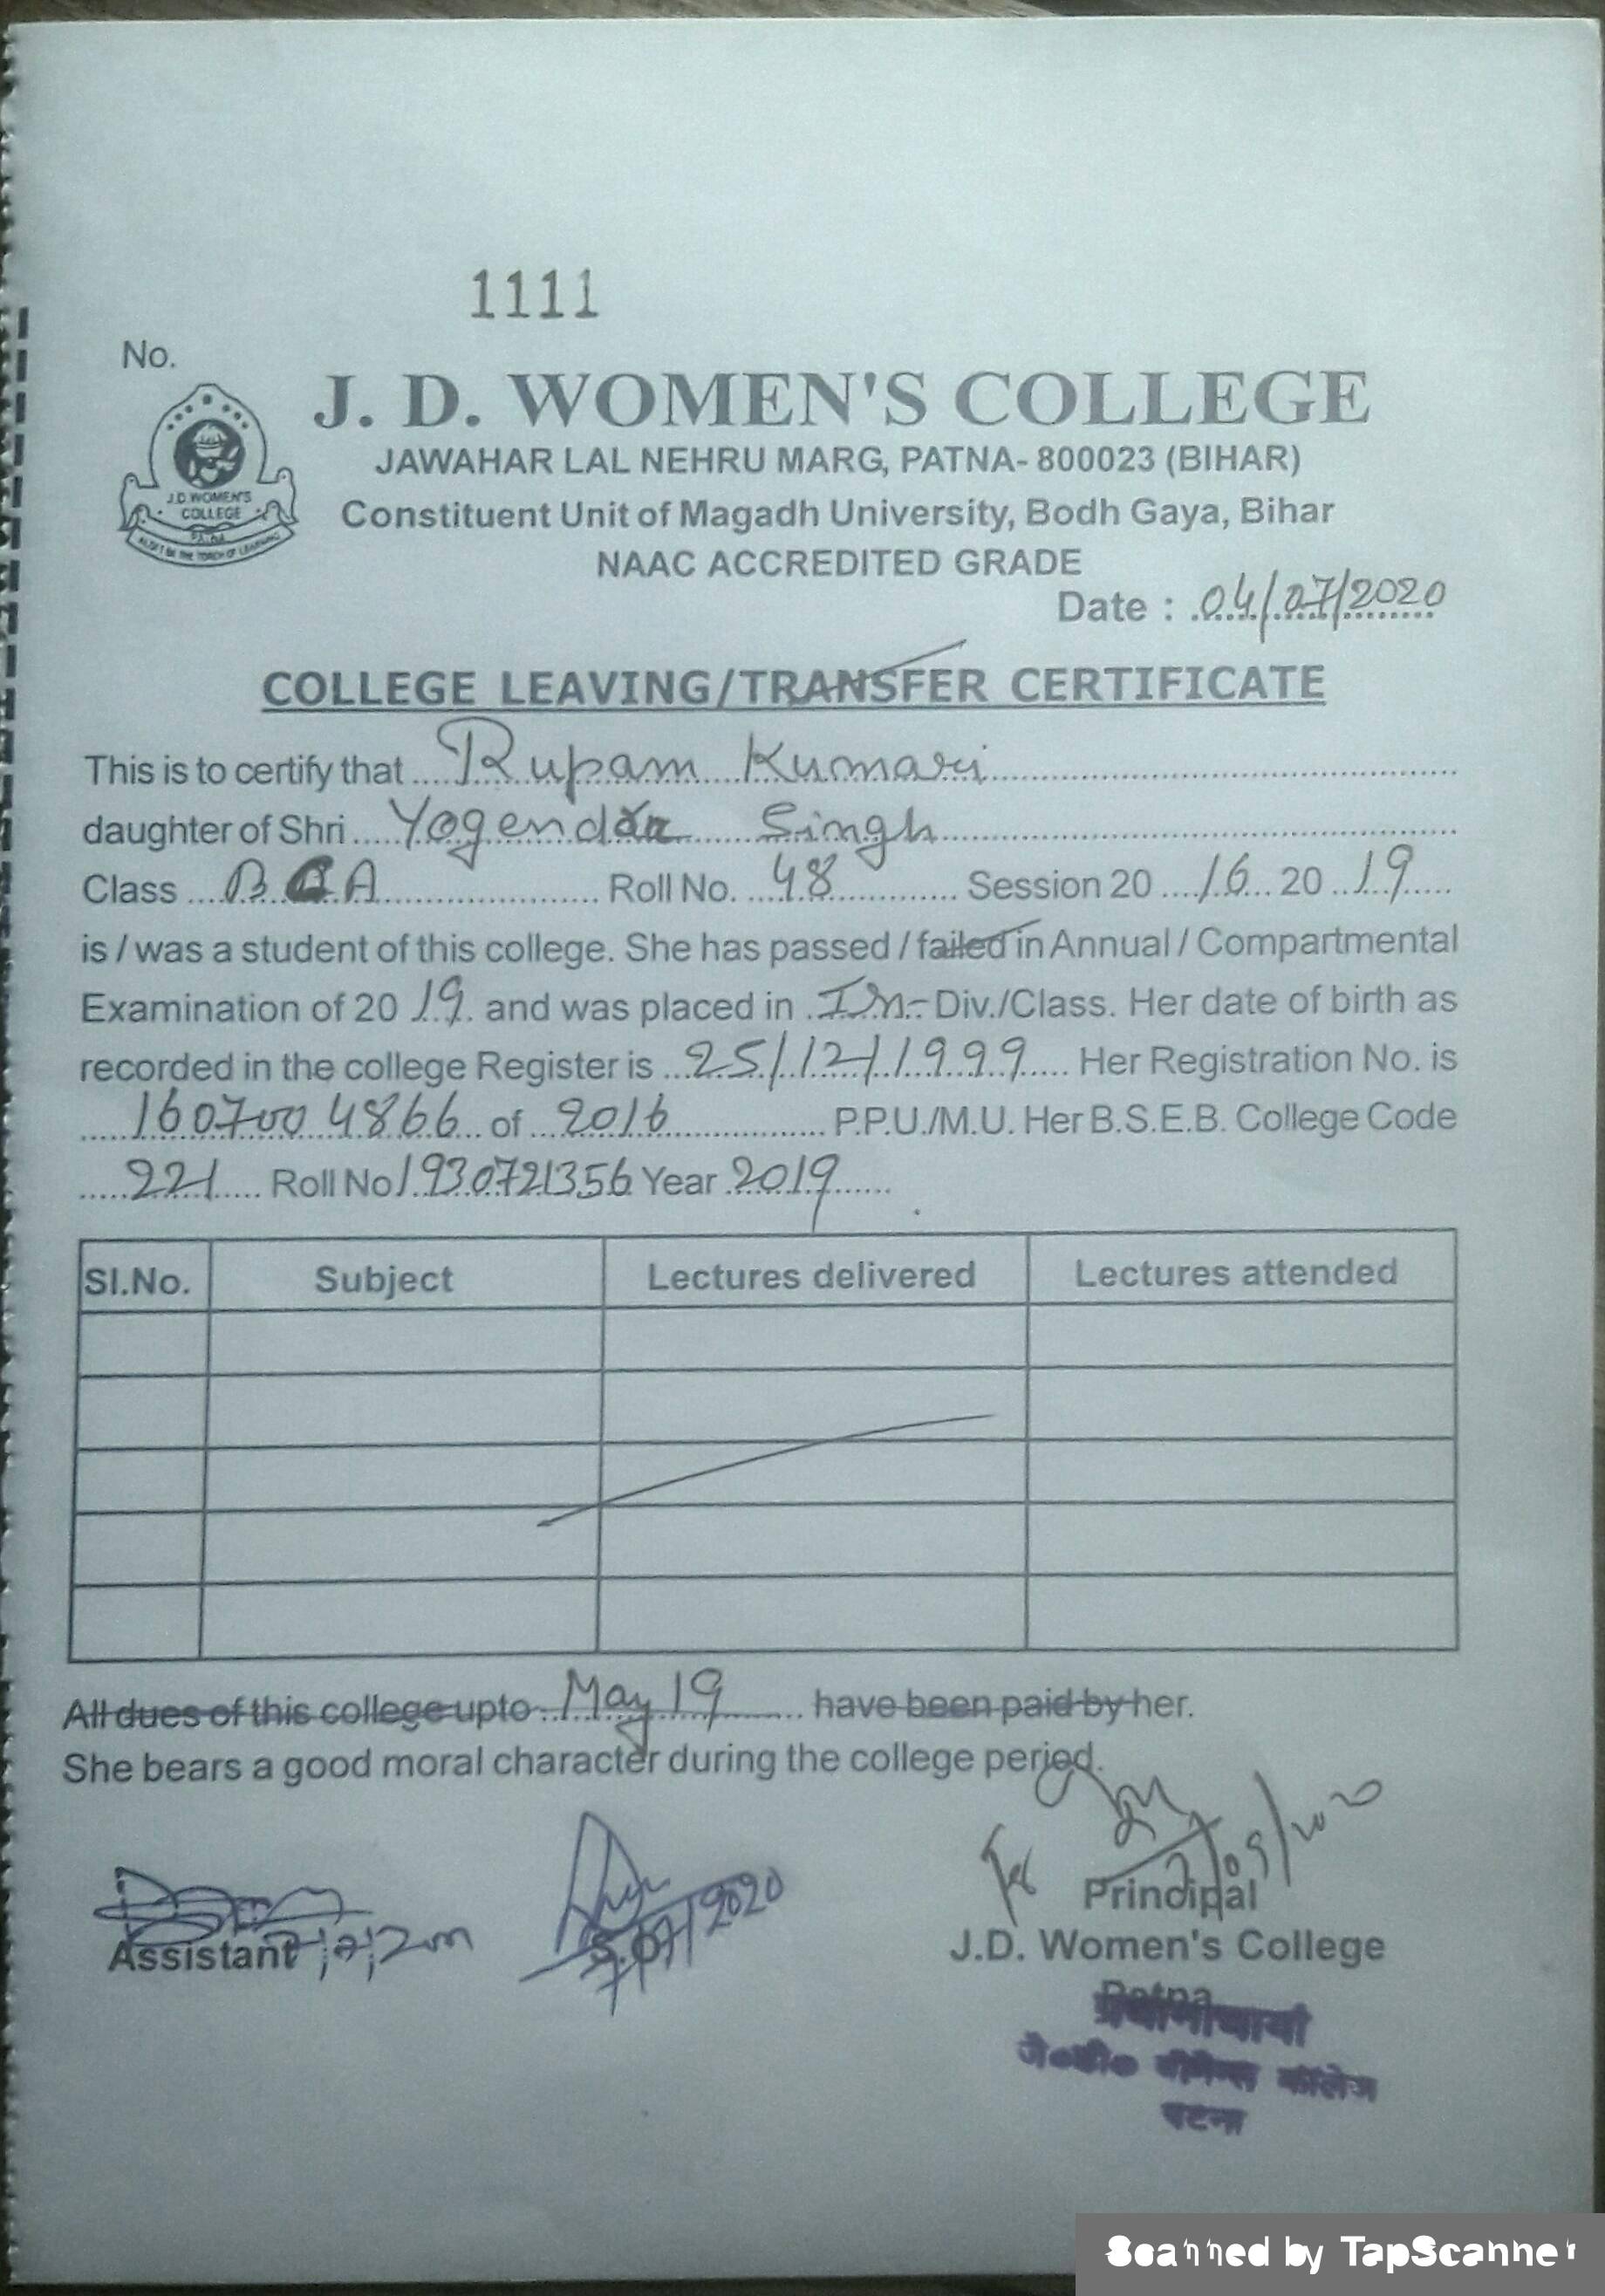 1111
No.
J. D. WOMEN'S COLLEGE
JAWAHAR LAL NEHRU MARG, PATNA- 800023 (BIHAR)
J.D. WOMEN'S
COLLEGE
Constituent Unit of Magadh University, Bodh Gaya, Bihar
NAAC ACCREDITED GRADE
Date : 04/07/2020
COLLEGE LEAVING/TRANSFER CERTIFICATE
This is to certify that Rupam Kumari
daughter of Shri Singh
Class B C A Roll No. 48 Session 20 16 20 19
is / was a student of this college. She has passed / failed in Annual / Compartmental
Examination of 20 19 and was placed in Div./Class. Her date of birth as
recorded in the college Register is 25/12/1999 Her Registration No. is
1607004866 of 2016 P.P.U./M.U. Her B.S.E.B. College Code
221 Roll No 1930721356 Year 2019
Sl.No. Subject Lectures delivered Lectures attended
All dues of this college upto May 19 have been paid by her.
She bears a good moral character during the college period.
Principal
Assistant
J.D. Women's College
Patna
प्रधानाचार्या
जे०डी० वीमेन्स कॉलेज
पटना
Scanned by TapScanner